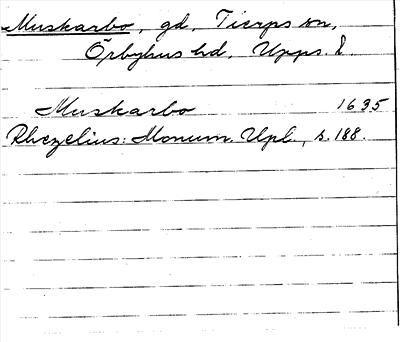 Muskarbo, gd, Tierps sn,
Örbyhus hd, Upps. l.
Muskarbo 1635
Rhezelius: Monum. Upl., s. 188.